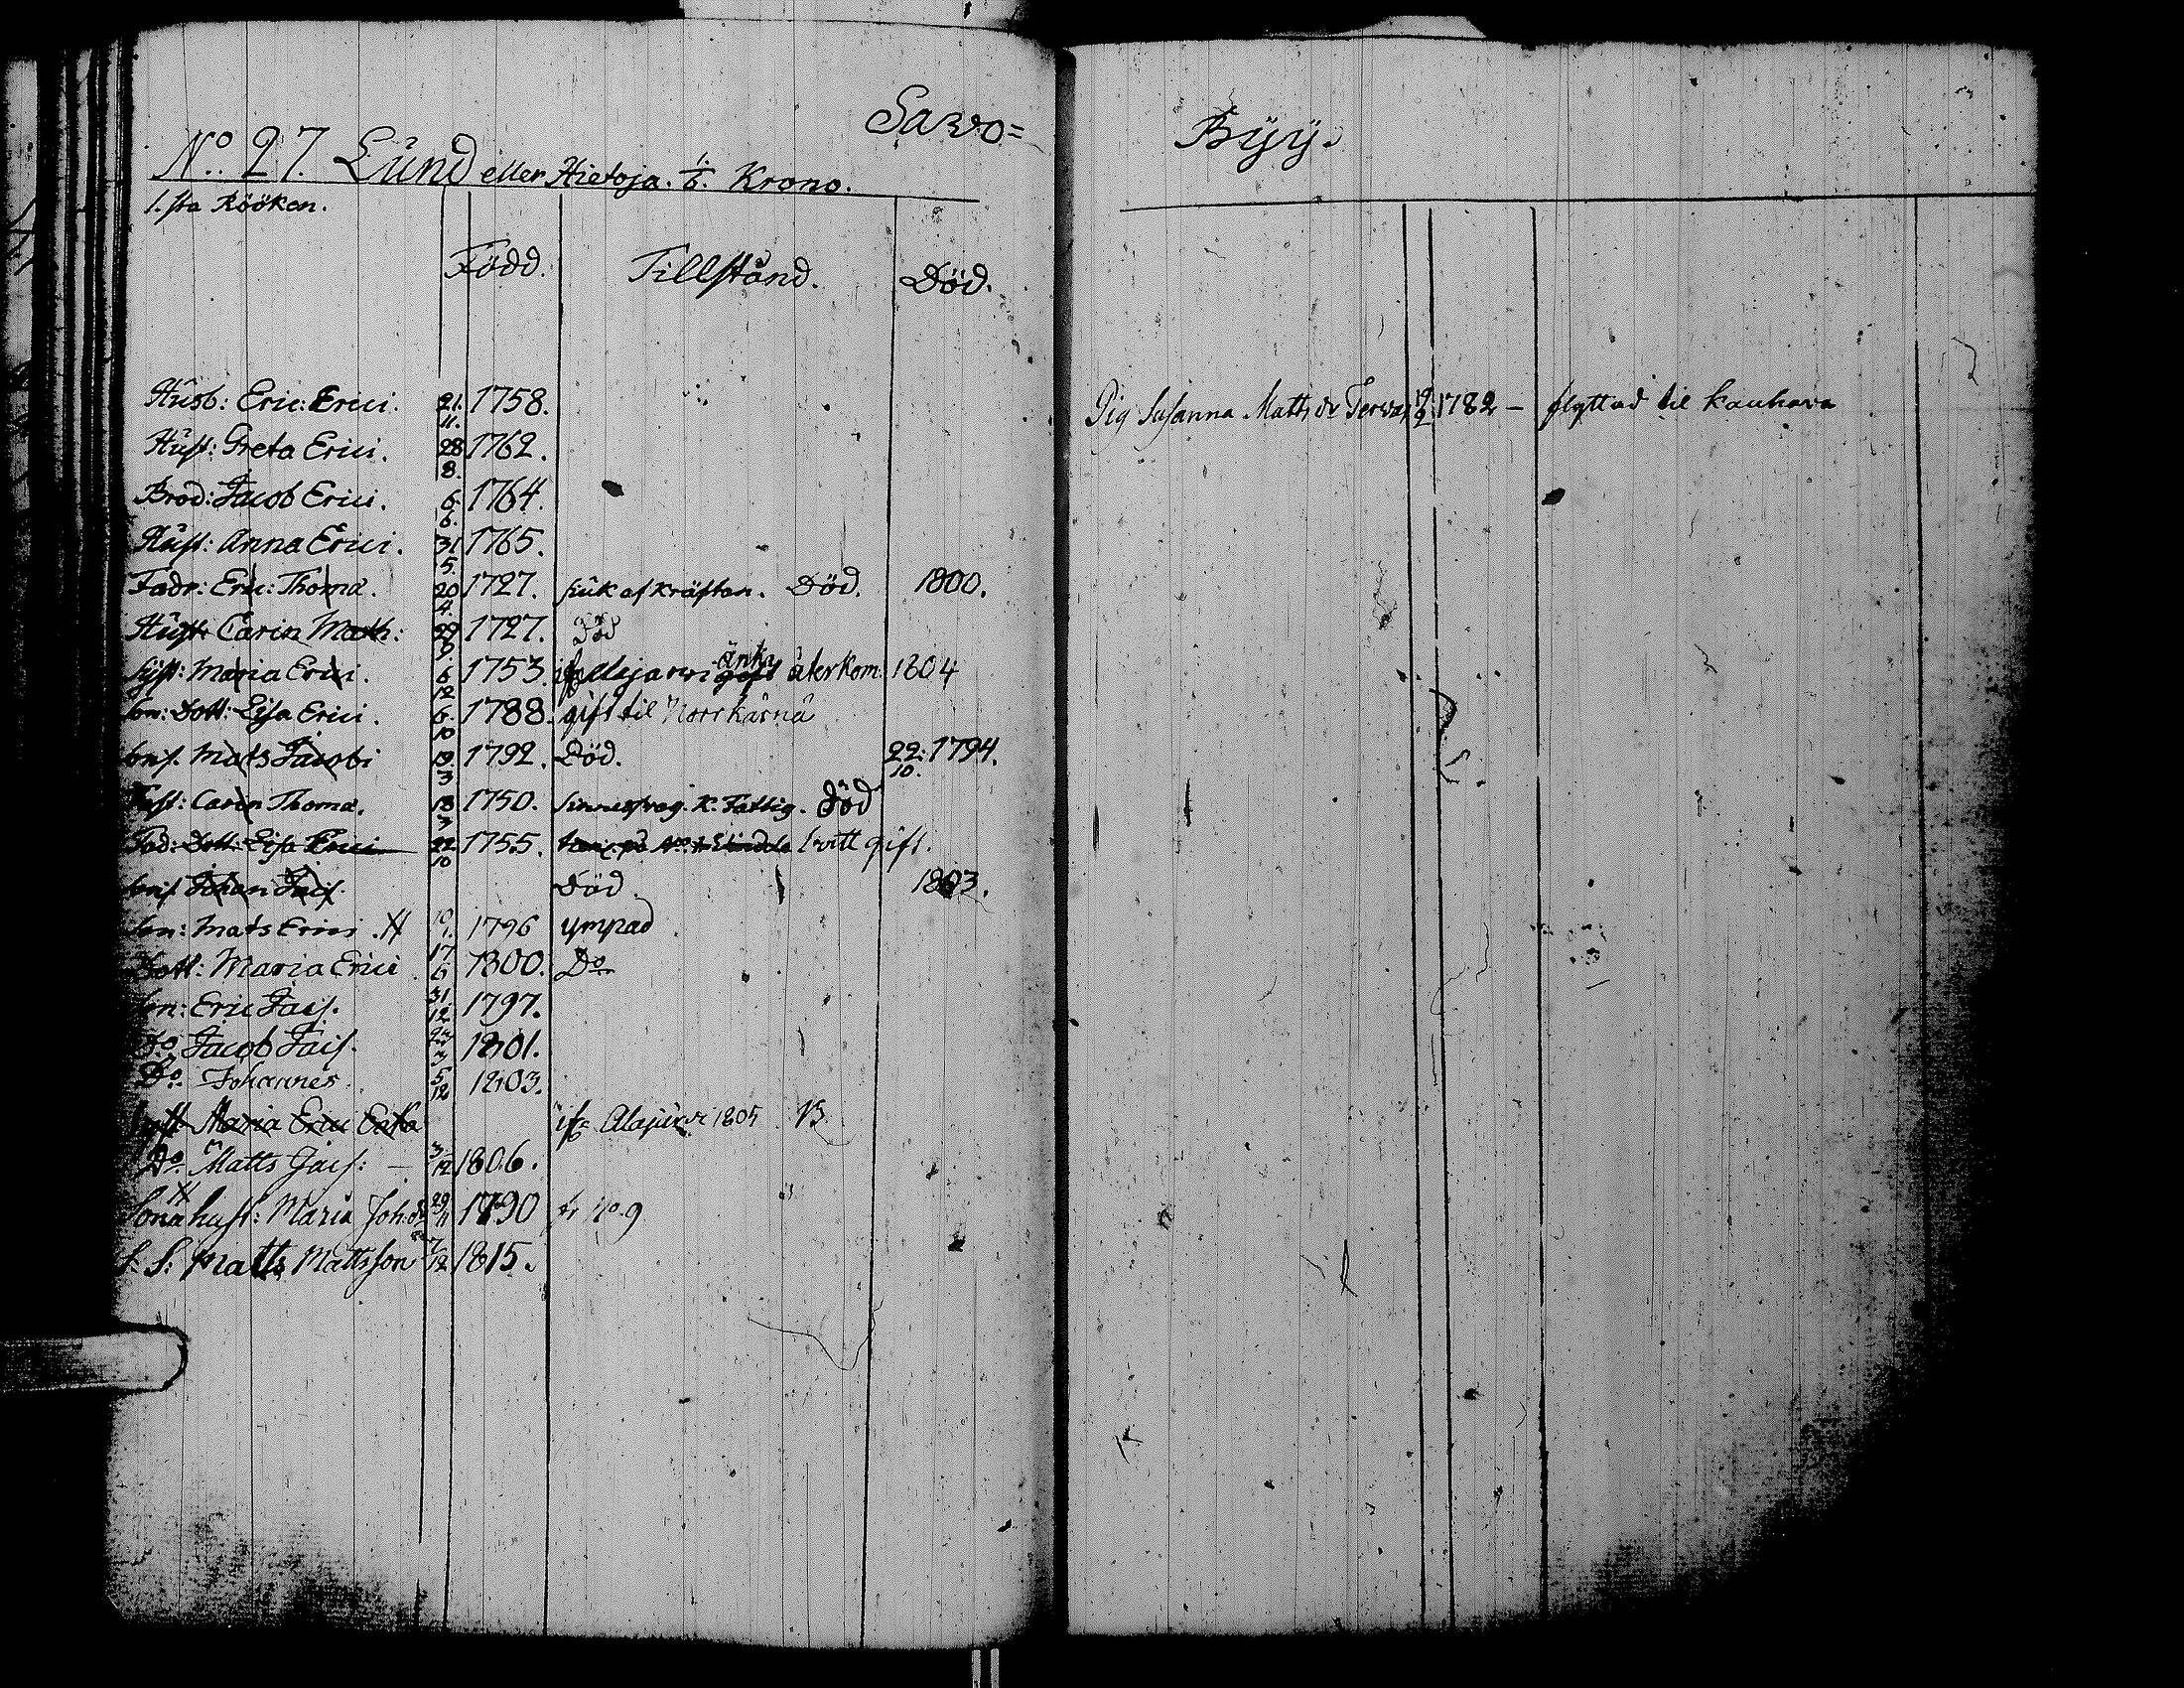 Sawo=
No. 27. Lund eller Hietoja. 1/6. Krono.
1.sta Rööken.
Född. Tillstånd. Död.
Husb: Eric: Erici. 21. 11. 1758.
Hust: Greta Erici. 28 8. 1762.
Brod: Jacob Erici. 6. 6. 1764.
Hust: Anna Erici. 31 5. 1765.
Fadr: Eric: Thomæ. 20 4. 1727. siuk af kräftan. Död. 1800.
Hust: Carin Math: 29 9. 1727. Död
Syst: Maria Erici. 6 12 1753. änka återkom. 1804
Son: Dott: Lisa Erici. 6. 10 1788. gift til Norrkårnä
Sons. Mats Jacobi 19. 3 1792. Död. 22. 10. 1794.
Fast: Carin Thomæ. 18 3 1750. Sinnessvag. K. Fattig. Död
Fad: Dott: Lisa Erici 22 10 1755. gift.
Sons Johan Jacs. Död 1803.
Son: Mats Erici 10 9. 1796 ympad
Dott: Maria Erici 17 6 1800. Do
Son: Eric Jacs. 31. 12. 1797.
Do Jacob Jacs. 1801.
Do Johannes. 5 12 1803.
Syst Maria Erici Enka ifr Alajärvi 1805
Do Matts Jacs: — 3 12 1806.
Sonahust: Maria Joh:dr 29 11 1790 fr No. 9
S. S: Matts Mattsson 7 12. 1815.
Byy.
Pig Susanna Matts dr 19 2 1782 — flyttad til Kauhava